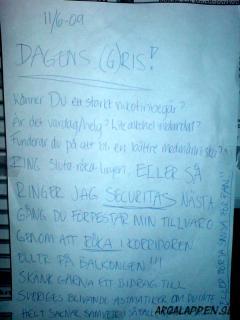 11/6-09
DAGENS (G)RIS!
Känner DU en starkt nikotinbegär?
Är det vardag/helg? Lite alkohol inblandat?
Funderar du på att bli en bättre medmänniska?
RING Sluta röka linjen, ELLER SÅ
RINGER JAG SECURITAS NÄSTA
GÅNG DU FÖRPESTAR MIN TILLVARO
GENOM ATT RÖKA I KORRIDOREN
ELLER PÅ BALKONGEN!!!
SKÄNK GÄRNA ETT BIDRAG TILL
SVERIGES BLIVANDE ASTMATIKER OM DU INTE
HELT SAKNAR SAMVETE
ARGALAPPEN.SE